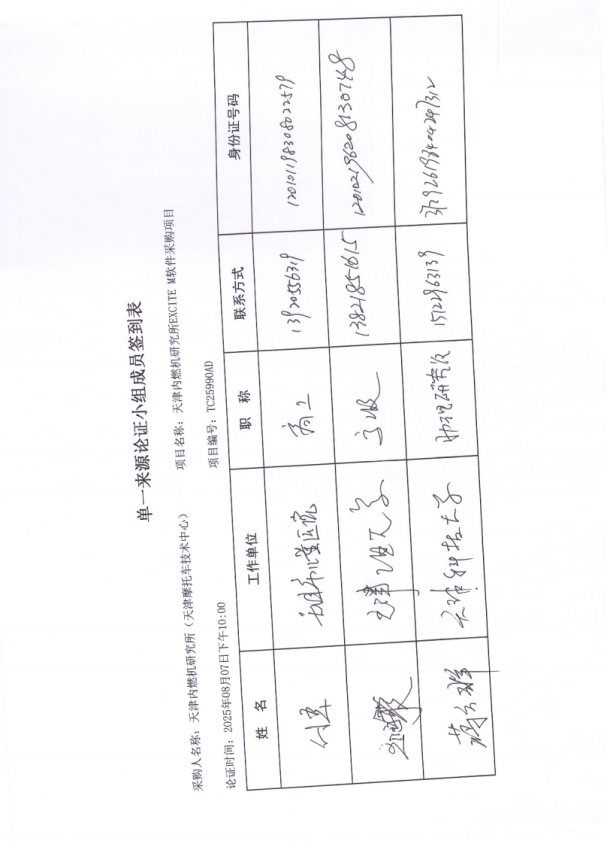 单一来源论证小组成员签到表
采购人名称：天津内燃机研究所（天津摩托车技术中心） 项目名称：天津内燃机研究所EXCITE M软件采购项目
论证时间：2025年08月07日下午10:00 项目编号：TC25990AD
姓 名 工作单位 职 称 联系方式 身份证号码
高工 13920556319 120101198308022579
天津理工大学 13821851615 120102196208130748
天津科技大学 助理研究员 15122963139